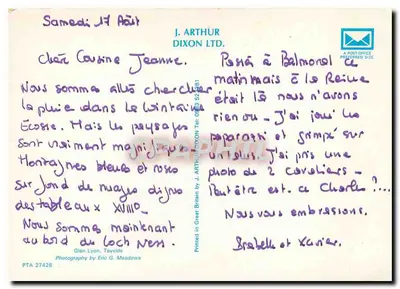 Samedi 17 Août
J. ARTHUR
DIXON LTD.
A POST OFFICE
PREFERRED SIZE
Chère Cousine Jeanne.
Nous sommes allés chercher
la pluie dans la lointaine
Ecosse. Mais les paysages
sont vraiment magnifiques.
Montagnes bleues et roses
sur fond de nuages digne
des tableaux XVIII°
Nous sommes maintenant
au bord du Loch Ness.
Glen Lyon, Tayside
Photography by Eric G. Meadows
PTA 27428
Printed in Great Britain by J. ARTHUR DIXON
Passés à Balmoral ce
matin mais à la Reine
était là nous n'avons
rien vu - J'ai joué les
paparazzi et grimpé sur
J'ai pris une
photo de 2 cavaliers -
Peut être est-ce Charles ?...
Nous vous embrassons.
et Xavier.